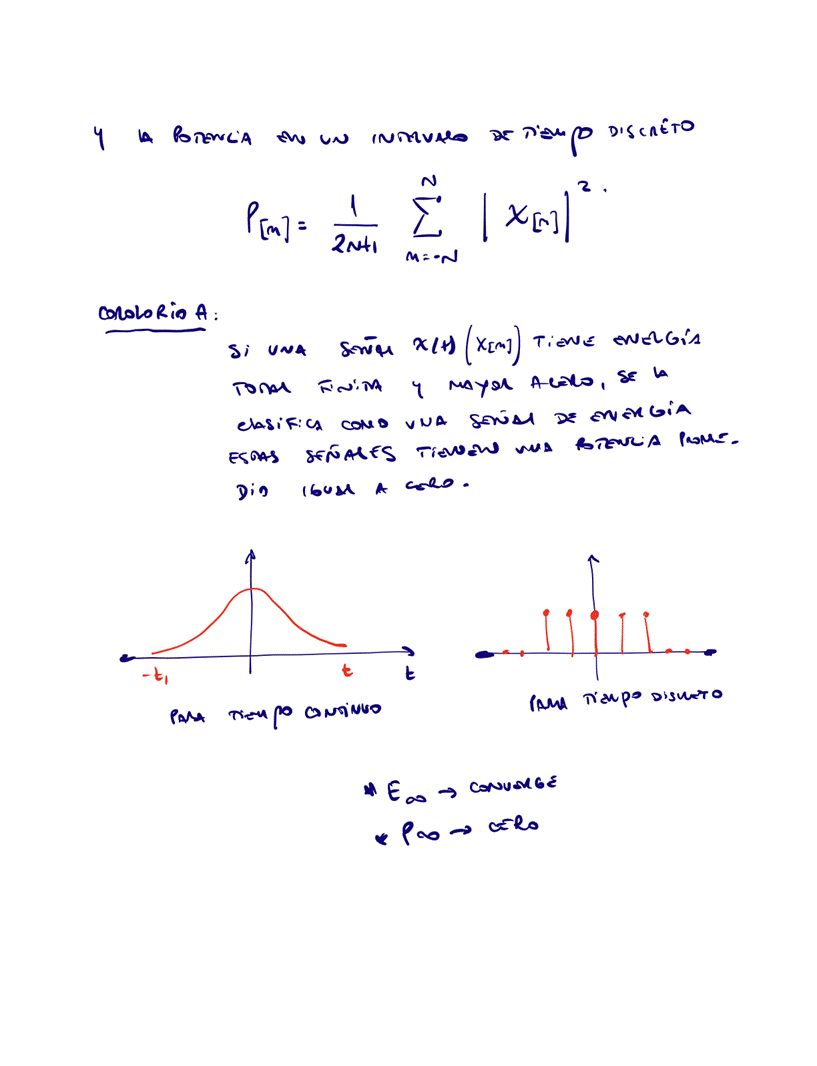 Y LA POTENCIA EN UN INTERVALO DE TIEMPO DISCRETO
P[n] = 1/(2N+1) Σ_{n=-N}^{N} | X[n] |².
COROLORIO A:
SI UNA SEÑAL X(t) (X[n]) TIENE ENERGÍA
TOTAL FINITA Y MAYOR A CERO, SE LA
CLASIFICA COMO UNA SEÑAL DE ENERGÍA
ESTAS SEÑALES TIENEN UNA POTENCIA PROME-
DIO IGUAL A CERO.
-t₁ t t
PARA TIEMPO CONTINUO
PARA TIEMPO DISCRETO
* E∞ → CONVERGE
* P∞ → CERO